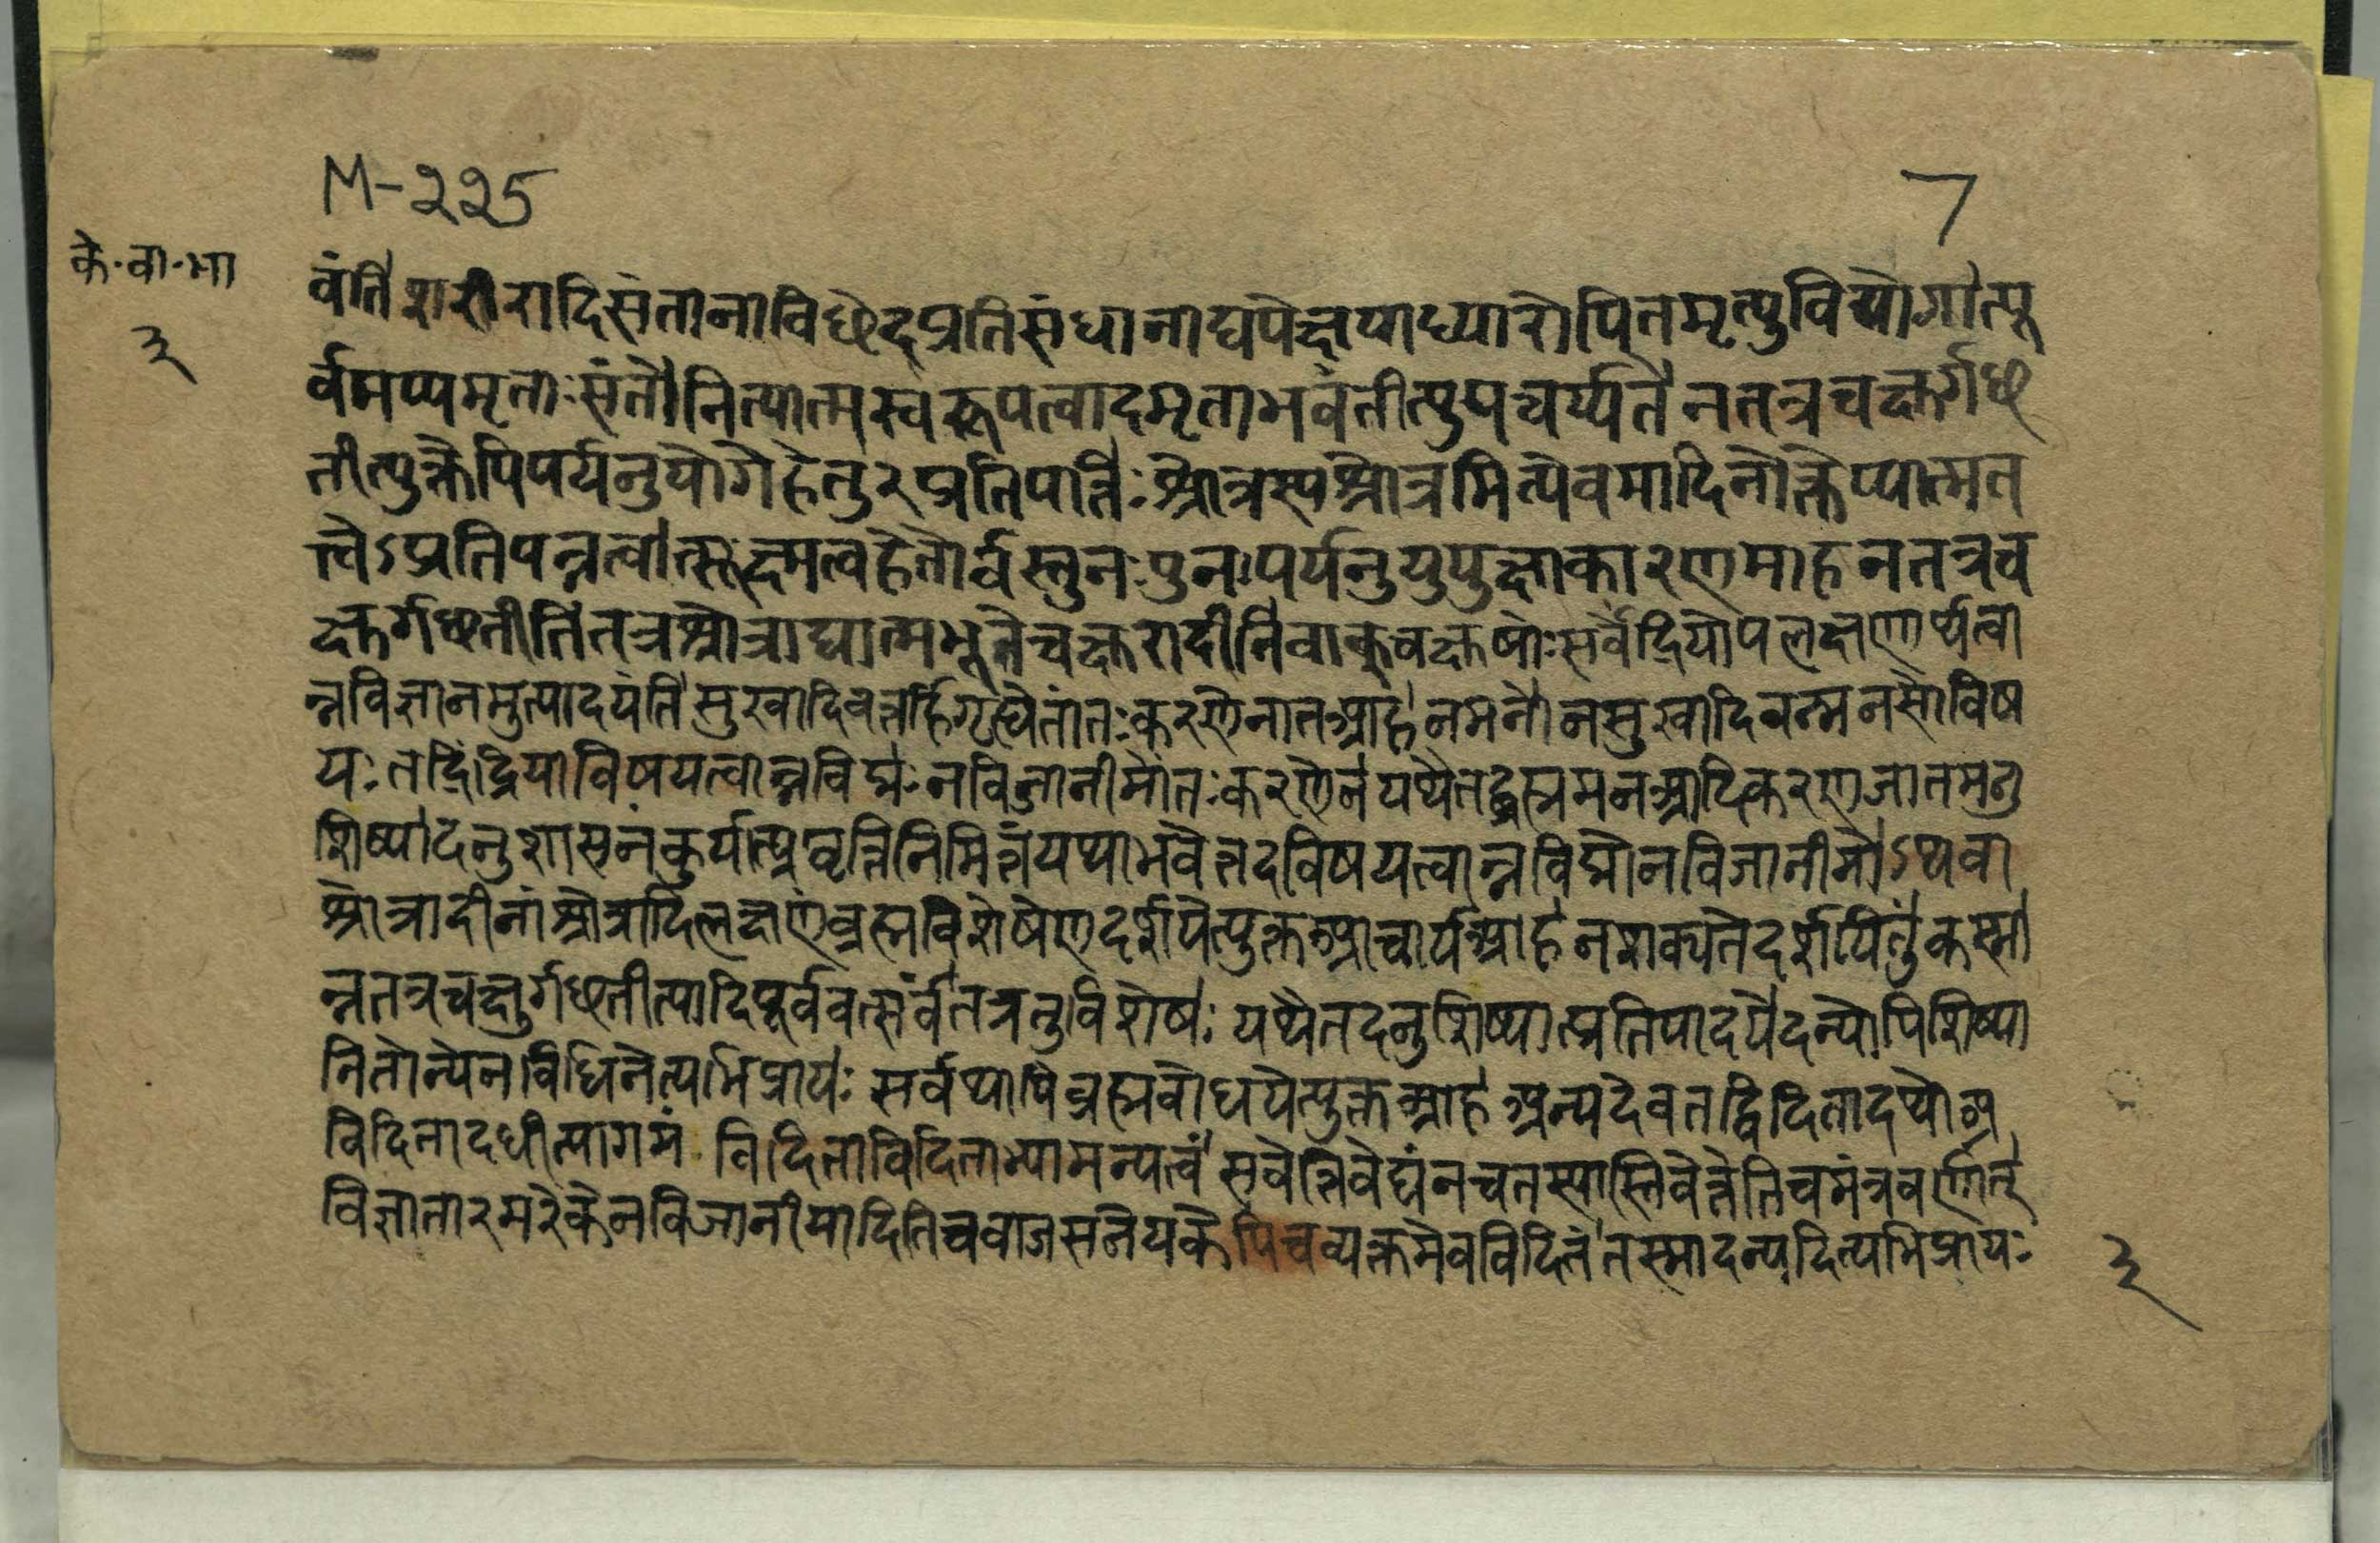 M-225
7
के·वा·भा
३
वंति शरीरादिसंतानाविछेदप्रतिसंधानाद्यपेक्षयाध्यारोपितमृत्युवियोगात्पू
र्वमप्यमृताः संतो नित्यात्मस्वरूपत्वादमृताभवंतीत्युपचर्य्यते न तत्र चक्षुर्गछ
तीत्युक्तेपि पर्यनुयोगे हेतुरप्रतिपत्तेः श्रोत्रस्य श्रोत्रमित्येवमादिनोक्तेप्यात्मत
त्त्वेऽप्रतिपन्नत्वात्सूक्ष्मत्वहेतोर्वस्तुनः पुनः पर्यनुयुयुक्षाकारणमाह न तत्र च
क्षुर्गछतीति तत्र श्रोत्राद्यात्मभूते चक्षुरादीनि वाक्चक्षुषोः सर्वेंद्रियोपलक्षणार्थत्वा
न्न विज्ञानमुत्पादयंति सुखादिवत्तर्हि गृह्येतांतःकरणेनात आह नमनो न सुखादिवन्मनसो विष
यः तदिंद्रियाविषयत्वान्न विद्मः न विजानीमोंतःकरणेन यथैतद्ब्रह्म मन आदिकरणजातमनु
शिष्यादनुशासनं कुर्यात्प्रवृत्तिनिमित्तं यथाभवेत्तदविषयत्वान्न विद्मो न विजानीमोऽथवा
श्रोत्रादीनां श्रोत्रादिलक्षणं ब्रह्मविशेषेण दर्शयेत्युक्त आचार्य आह न शक्यते दर्शयितुं कस्मा
न्न तत्र चक्षुर्गछतीत्यादि पूर्ववत्सर्वं तत्र तु विशेषः यथैतदनुशिष्यात्प्रतिपादयेदन्योपि शिष्या
नितोन्येन विधिनेत्यभिप्रायः सर्वथापि ब्रह्मबोधयेत्युक्त आह अन्यदेव तद्विदितादथो अ
विदितादधीत्यागमं विदिताविदिताभ्यामन्यत्वं स वेत्ति वेद्यं न च तस्यास्ति वेत्तेति च मंत्रवर्णात्
विज्ञातारमरे केन विजानीयादिति च वाजसनेयकेपि च व्यक्तमेव विदितं तस्मादन्यदित्यभिप्रायः
३